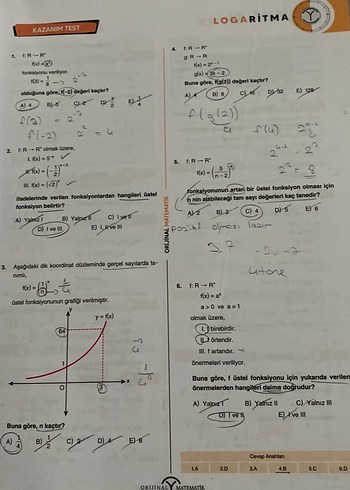 LOGARİTMA
KAZANIM TEST
1. f: R → R⁺
f(x) = aˣ
fonksiyonu veriliyor.
olduğuna göre, f(-2) değeri kaçtır?
A) 4 B) 5 E) 1/4
f(-2) = 4
2. f: R → R⁺ olmak üzere,
I. f(x) = 5⁻ˣ
III. f(x) = (√2)ˣ
ifadelerinde verilen fonksiyonlardan hangileri üstel fonksiyon belirtir?
A) Yalnız I B) Yalnız II C) I ve II
D) I ve III E) I, II ve III
3. Aşağıdaki dik koordinat düzleminde gerçel sayılarda tanımlı,
f(x) = (1/n)ˣ
üstel fonksiyonunun grafiği verilmiştir.
y
y = f(x)
64
1
O 3 x
Buna göre, n kaçtır?
A) 1/4 B) 1/2 C) 2 D) 4 E) 8
4. f: R → R⁺
g: R → R
g(x) = 3x - 2
Buna göre, f(g(2)) değeri kaçtır?
A) 4 B) 8 C) 16 D) 32 E) 128
f(g(2))
4
f(4)
5. f: R → R⁺
f(x) = (5/(n-2))ˣ
fonksiyonunun artan bir üstel fonksiyon olması için n nin alabileceği tam sayı değerleri kaç tanedir?
A) 2 B) 3 C) 4 D) 5 E) 6
pozitif olması lazım
4 tane
6. f: R → R⁺
f(x) = aˣ
a > 0 ve a ≠ 1
olmak üzere,
I. f birebirdir.
II. f örtendir.
III. f artandır.
önermeleri veriliyor.
Buna göre, f üstel fonksiyonu için yukarıda verilen önermelerden hangileri daima doğrudur?
A) Yalnız I B) Yalnız II C) Yalnız III
D) I ve II E) I ve III
Cevap Anahtarı
1.A 2.D 3.A 4.B 5.C 6.D
ORİJİNAL MATEMATİK
ORİJİNAL MATEMATİK